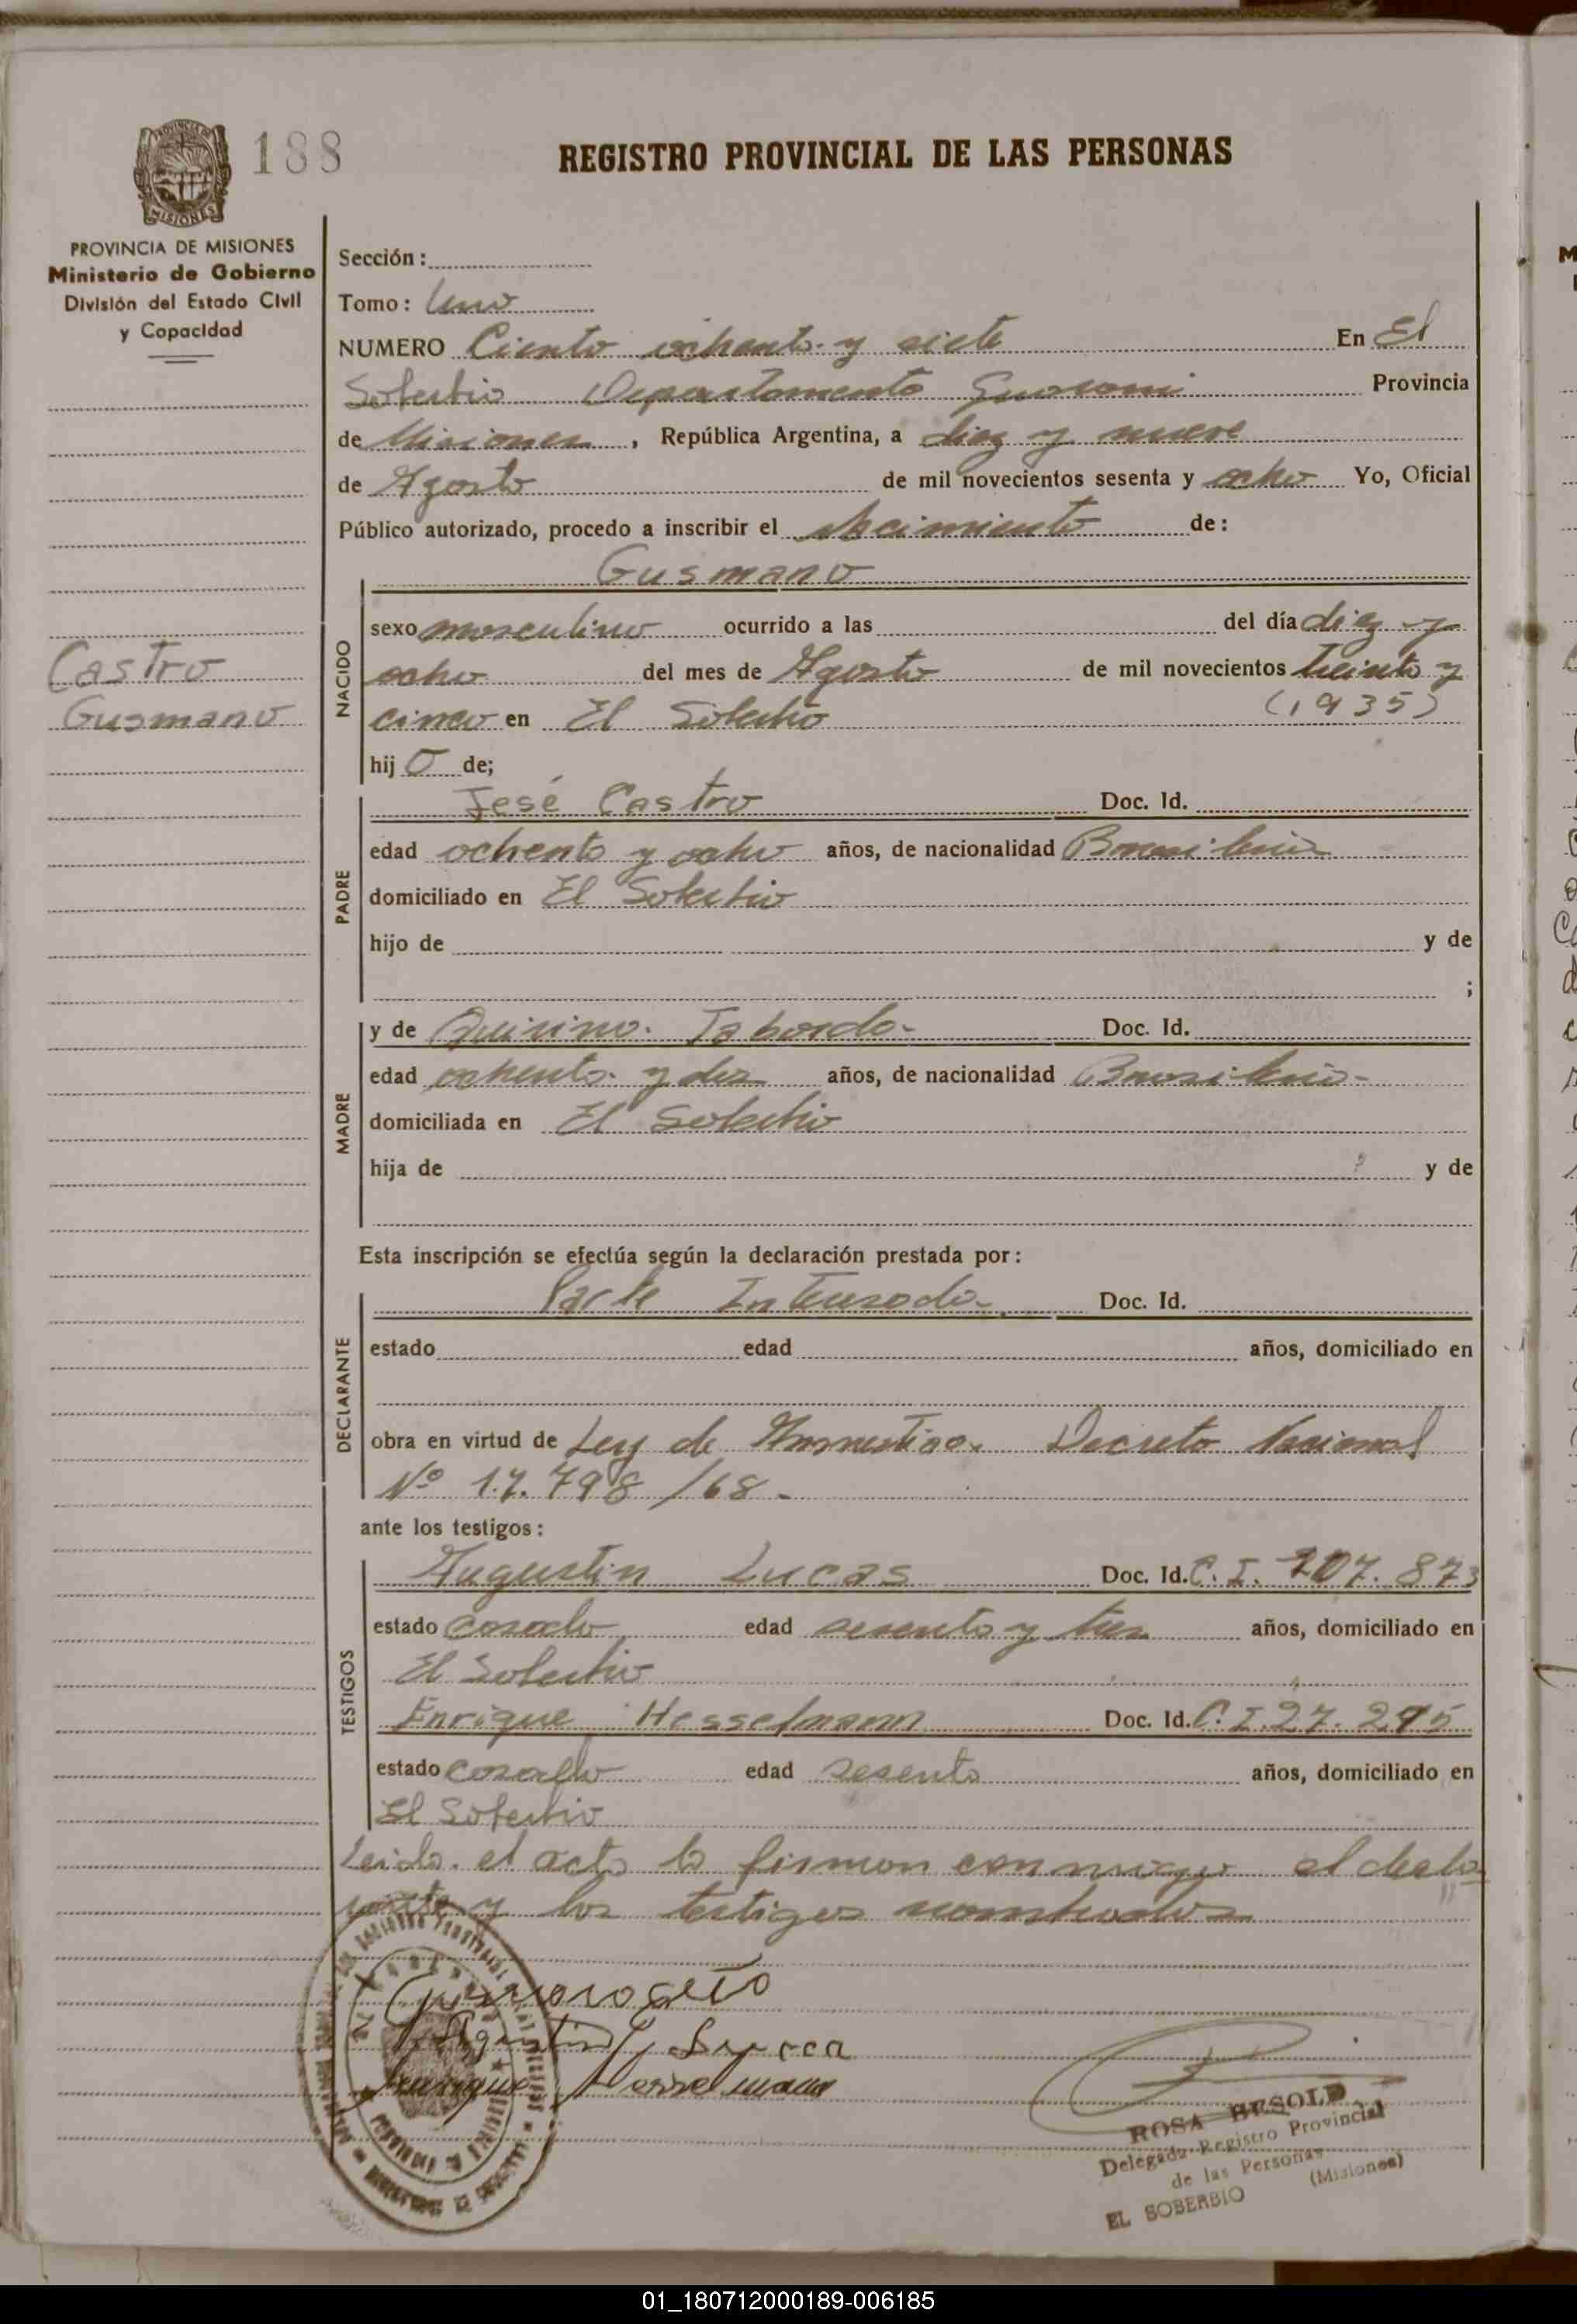 188
REGISTRO PROVINCIAL DE LAS PERSONAS
PROVINCIA DE MISIONES
Ministerio de Gobierno
División del Estado Civil
y Capacidad
Sección:
Tomo: Uno
NUMERO Ciento ochenta y siete En El
Soberbio Departamento Guarani Provincia
de Misiones, República Argentina, a diez y nueve
de Agosto de mil novecientos sesenta y ocho Yo, Oficial
Público autorizado, procedo a inscribir el Nacimiento de:
Gusmano
NACIDO
sexo masculino ocurrido a las del día diez y
ocho del mes de Agosto de mil novecientos treinta y
Castro
Gusmano
cinco en El Soberbio (1935)
hijo de;
José Castro Doc. Id.
PADRE
edad ochenta y ocho años, de nacionalidad Brasileña
domiciliado en El Soberbio
hijo de y de
;
y de Quirina Taborda- Doc. Id.
MADRE
edad ochenta y dos años, de nacionalidad Brasileña-
domiciliada en El Soberbio
hija de y de
Esta inscripción se efectúa según la declaración prestada por:
Parte Interesada- Doc. Id.
DECLARANTE
estado edad años, domiciliado en
obra en virtud de Ley de Amnestia. Decreto Nacional
Nº 17.798/68-
ante los testigos:
Augustin Lucas Doc. Id. C.I. 207.873
TESTIGOS
estado casado edad sesenta y tres años, domiciliado en
El Soberbio
Enrique Hesselmann Doc. Id. C.I. 27.295
estado casado edad sesenta años, domiciliado en
El Soberbio
Leida el acta la firman conmigo el decla-
rante y los testigos nombrados
Enrique Hesselmann
ROSA BESOLD
Delegada Registro Provincial
de las Personas
EL SOBERBIO (Misiones)
01_180712000189-006185